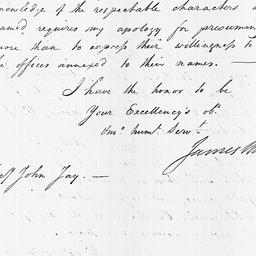 knowledge of the respectable characters
named, requires my apology for presuming
more than to express their willingness to
the offices annexed to their names. —
I have the honor to be
Your Excellency's ob.t
hum.l Serv.t
James
John Jay. —